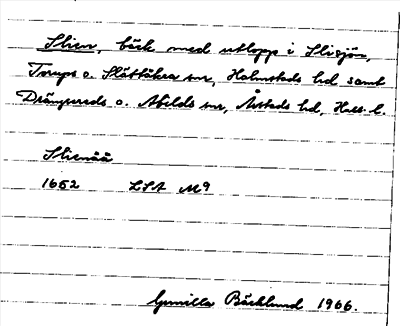 Slien, bäck med utlopp i Slisjön,
Torups o. Slättåkra snr, Halmstads hd samt
Drängsereds o. Abilds snr, Årstads hd, Hall. l.
Slienåå
1652 LSA M9
Gunilla Bäcklund 1966.